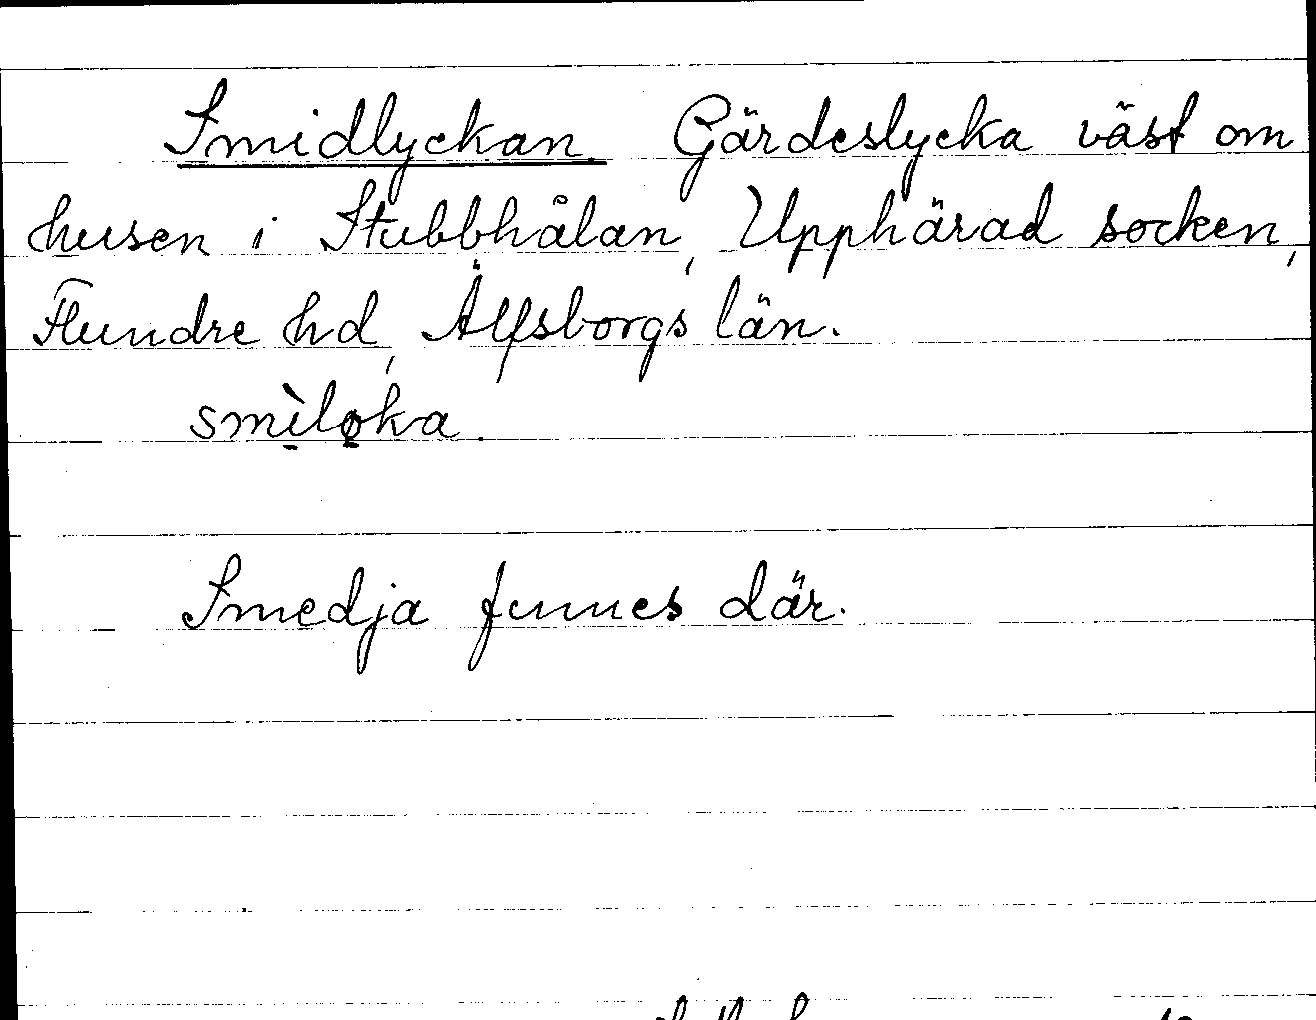 Smidlyckan. Gärdeslycka väst om
husen i Stubbhålan, Upphärad socken,
Flundre hd, Älfsborgs län.
smìlo̱ka.
Smedja funnes där.